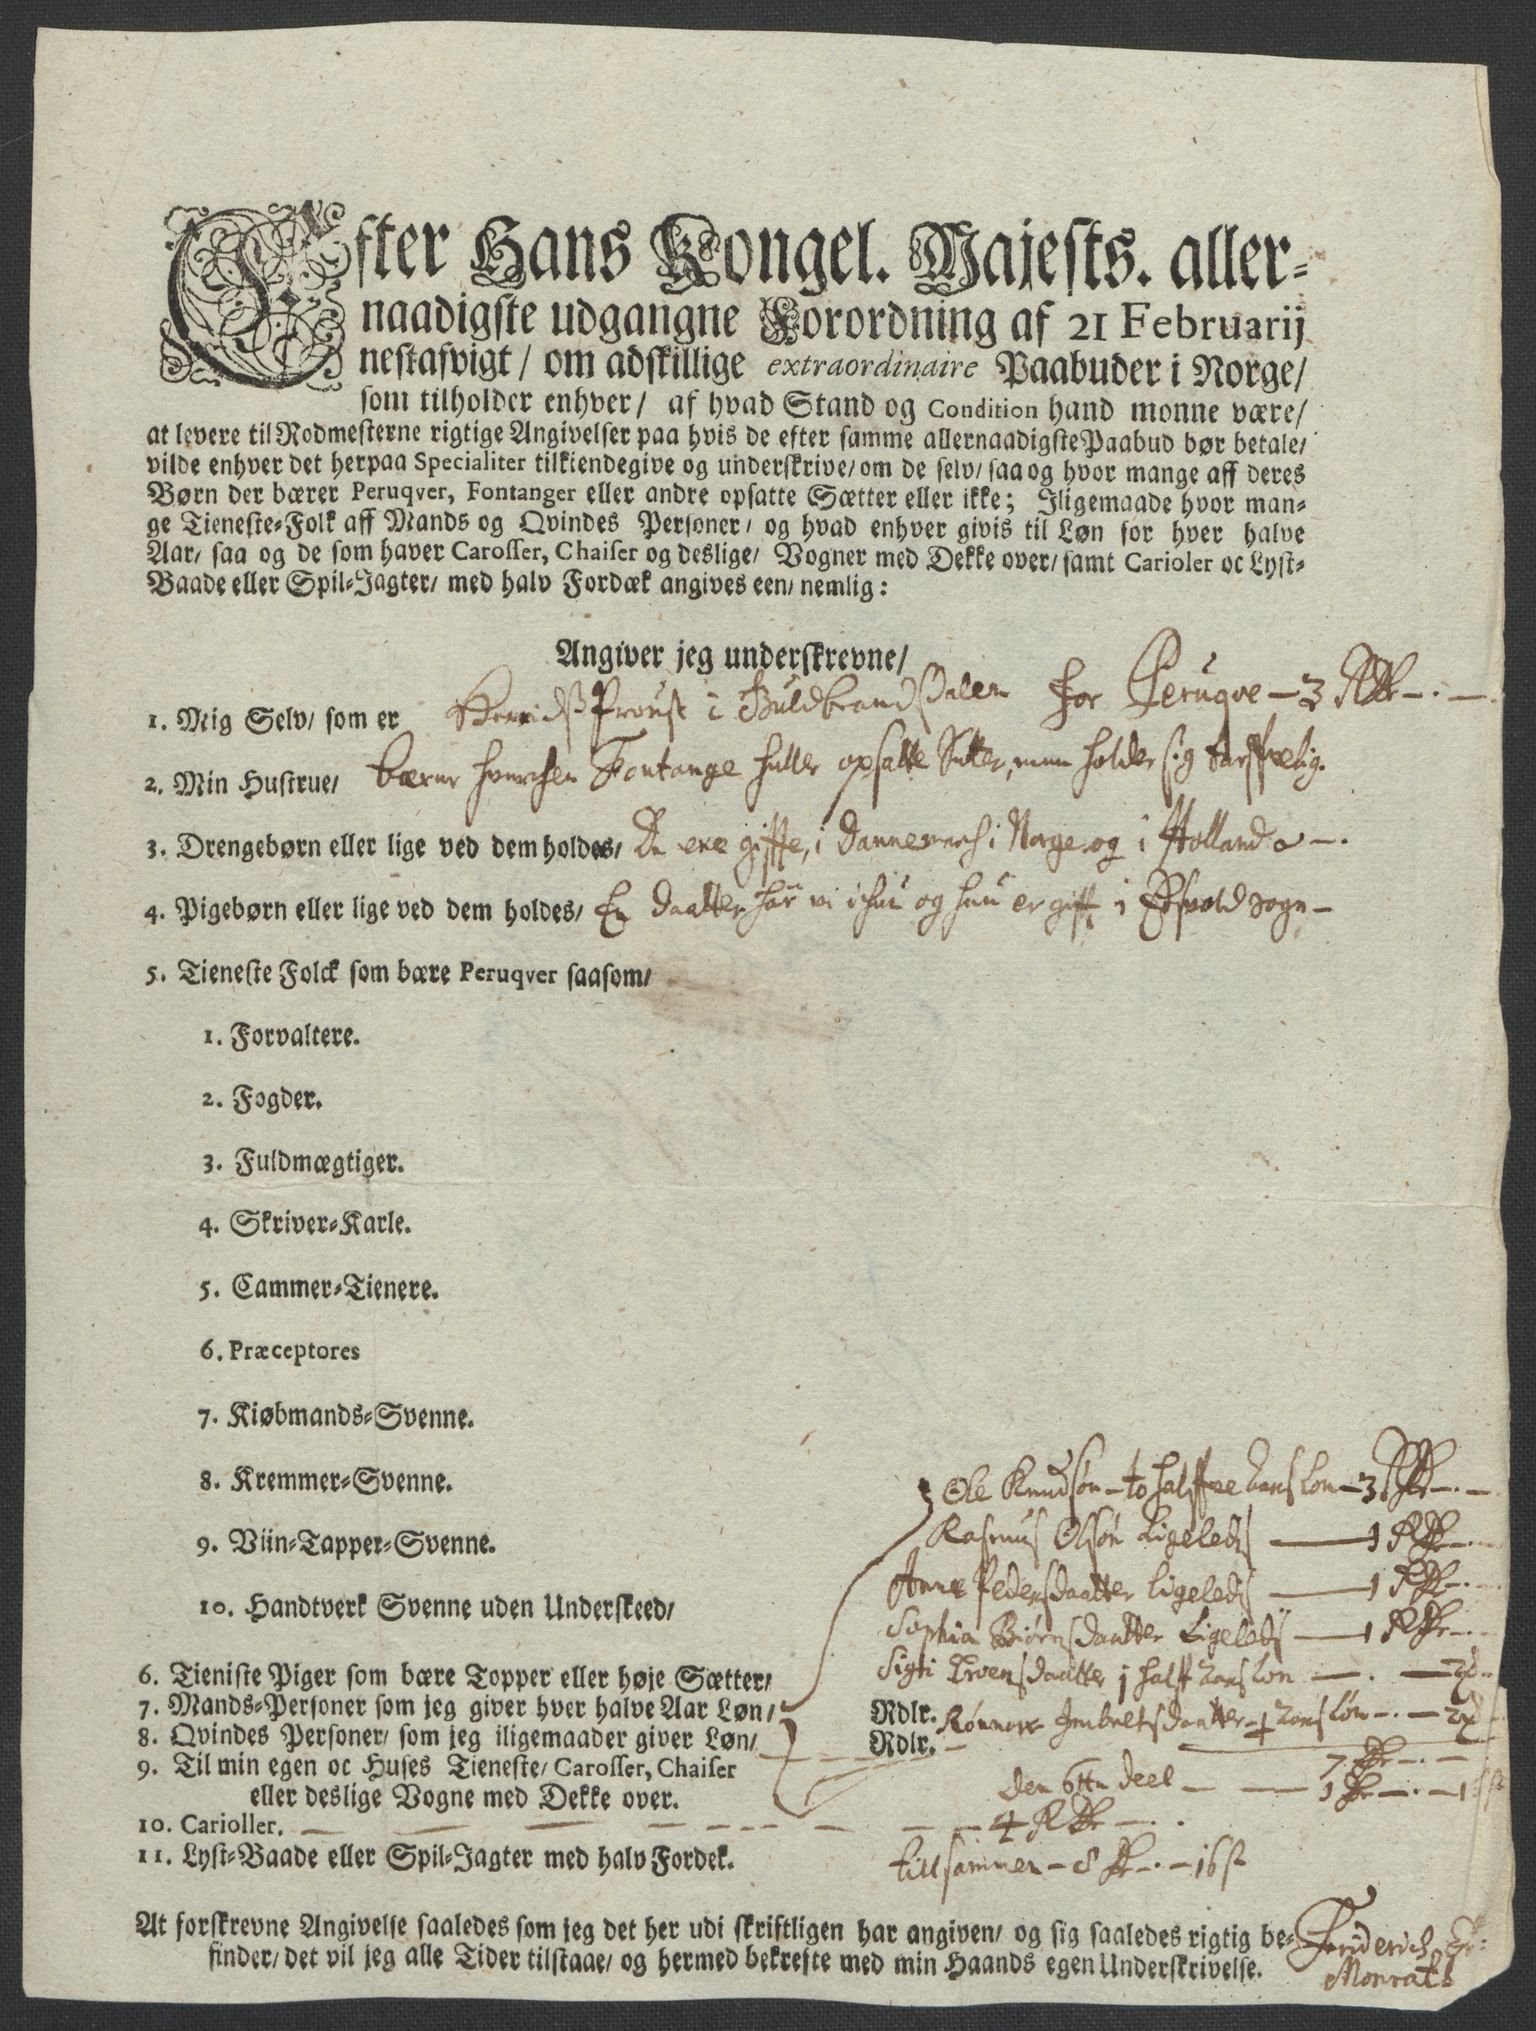 Efter Hans Kongel. Majests. aller-
naadigste udgangne Forordning af 21 Februarij
nestafvigt / om adskillige extraordinaire Paabuder i Norge /
som tilholder enhver / af hvad Stand og Condition hand monne være /
at levere til Rodmesterne rigtige Angivelser paa hvis de efter samme allernaadigste Paabud bør betale /
vilde enhver det herpaa Specialiter tilkiendegive og underskrive / om de selv / saa og hvor mange aff deres
Børn der bærer Peruqver, Fontanger eller andre opsatte Sætter eller ikke; Iligemaade hvor man-
ge Tieneste-Folk aff Mands og Qvindes Personer / og hvad enhver givis til Løn for hver halve
Aar / saa og de som haver Carosser, Chaiser og deslige / Vogner med Dekke over / samt Carioler oc Lyst-
Baade eller Spil-Jagter / med halv Fordæk angives een / nemlig:
Angiver jeg underskrevne /
1. Mig Selv / som er Proust i Guldbrandsdalen for Peruqve - 3 Rdr - . -
2. Min Hustrue / bærer hverchen Fontange heller opsatte Setter, men holder sig
3. Drengebørn eller lige ved dem holdes / De ere giffte, i Dannemarch i Norge og i Holland -.
4. Pigebørn eller lige ved dem holdes / En daatter har vi og hun er gifft i Eidsvold sogn -
5. Tieneste Folck som bære Peruqver saasom /
1. Forvaltere.
2. Fogder.
3. Fuldmægtiger.
4. Skriver-Karle.
5. Cammer-Tienere.
6. Præceptores
7. Kiøbmands-Svenne.
8. Kremmer-Svenne.
Ole Knudsøn - to halffve aars lon - 3 Rdr - . -
9. Viin-Tapper-Svenne.
Rasmus Olsøn Ligeledis - 1 Rdr - . -
Anne Pedersdaatter ligeledis - 1 Rdr - . -
10. Handtverk Svenne uden Underskeed /
Sophia Biørnsdaatter Ligeledis - 1 Rdr - . -
6. Tieniste Piger som bære Topper eller høje Sætter /
Sigri daatter j halff aars lon - . -
7. Mands-Personer som jeg giver hver halve Aar Løn / Rdlr.
8. Qvindes Personer / som jeg iligemaader giver Løn / Rdlr.
7 Rdr - . -
9. Til min egen oc Huses Tieneste / Carosser, Chaiser
eller deslige Vogne med Dekke over.
den 6te deel - 1 Rdr - . - 16 s
10. Carioller. - 4 Rdr - .
11. Lyst-Baade eller Spil-Jagter med halv Fordek.
tillsammen - 8 Rdr - . - 16 s
At forskrevne Angivelse saaledes som jeg det her udi skriftligen har angiven / og sig saaledes rigtig be-
finder / det vil jeg alle Tider tilstaae / og hermed bekrefte med min Haands egen Underskrivelse.
Friderich
Monrat